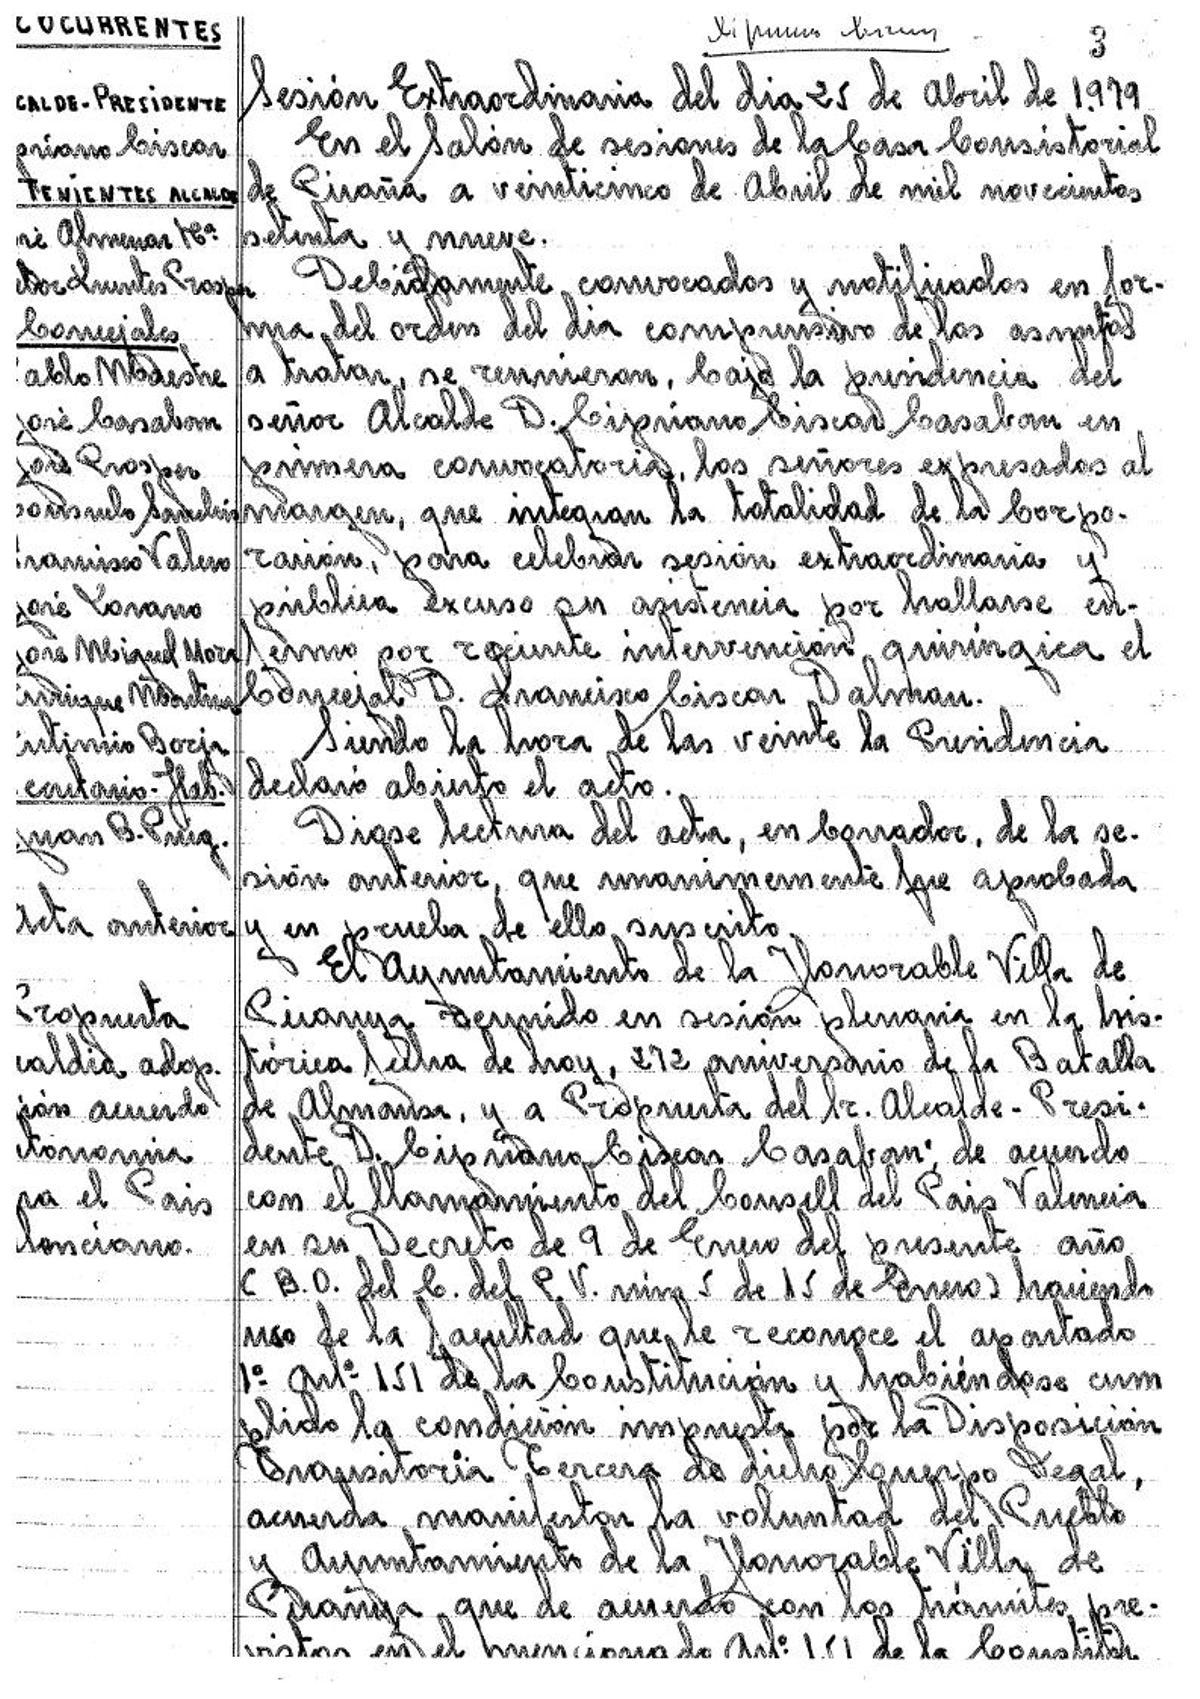 COCURRENTES
3
CALDE-PRESIDENTE
priano Ciscar
TENIENTES ALCALDE
né Almenar Mª
Fuentes Prosper
Concejales
ablo Maestre
José Casaban
José Prosper
onsuelo Sanchis
rancisco Valero
José Lozano
José Miguel Mora
nrique Martinez
Borja
ecretario-Hab.
Juan B. Puig.
Acta anterior
Propuesta
caldía adop.
ión acuerdo
utonomia
ra el Pais
lenciano.
Sesión Extraordinaria del dia 25 de Abril de 1.979
En el Salón de sesiones de la Casa Consistorial
de Picaña a veinticinco de Abril de mil novecientos
setenta y nueve.
Debidamente convocados y notificados en for-
ma del orden del dia comprensivo de los asuntos
a tratar, se reunieron, bajo la presidencia del
señor Alcalde D. Cipriano Ciscar Casaban en
primera convocatoria, los señores expresados al
margen, que integran la totalidad de la Corpo-
ración, para celebrar sesión extraordinaria y
pública excuso su asistencia por hallarse en-
fermo por reciente intervención quirúrgica el
Concejal D. Francisco Ciscar Dalmau.
Siendo la hora de las veinte la Presidencia
declaró abierto el acto.
Diose lectura del acta, en borrador, de la se-
sión anterior, que unanimemente fue aprobada
y en prueba de ello suscrito.
El Ayuntamiento de la Honorable Villa de
Picanya reunido en sesión plenaria en la his-
tórica fecha de hoy, 272 aniversario de la Batalla
de Almansa, y a Propuesta del Sr. Alcalde-Presi-
dente D. Cipriano Ciscar Casaban, de acuerdo
con el llamamiento del Consell del Pais Valencia
en su Decreto de 9 de Enero del presente año
(B.O. del C. del P.V. núm 5 de 15 de Enero) haciendo
uso de la facultad que le reconoce el apartado
1º Artº 151 de la Constitución y habiéndose cum
plido la condición impuesta por la Disposición
Tercera de dicho Cuerpo Legal,
acuerda manifestar la voluntad del Pueblo
y Ayuntamiento de la Honorable Villa de
Picañya que de acuerdo con los trámites pre-
vistos en el mencionado Artº 151 de la Constitu